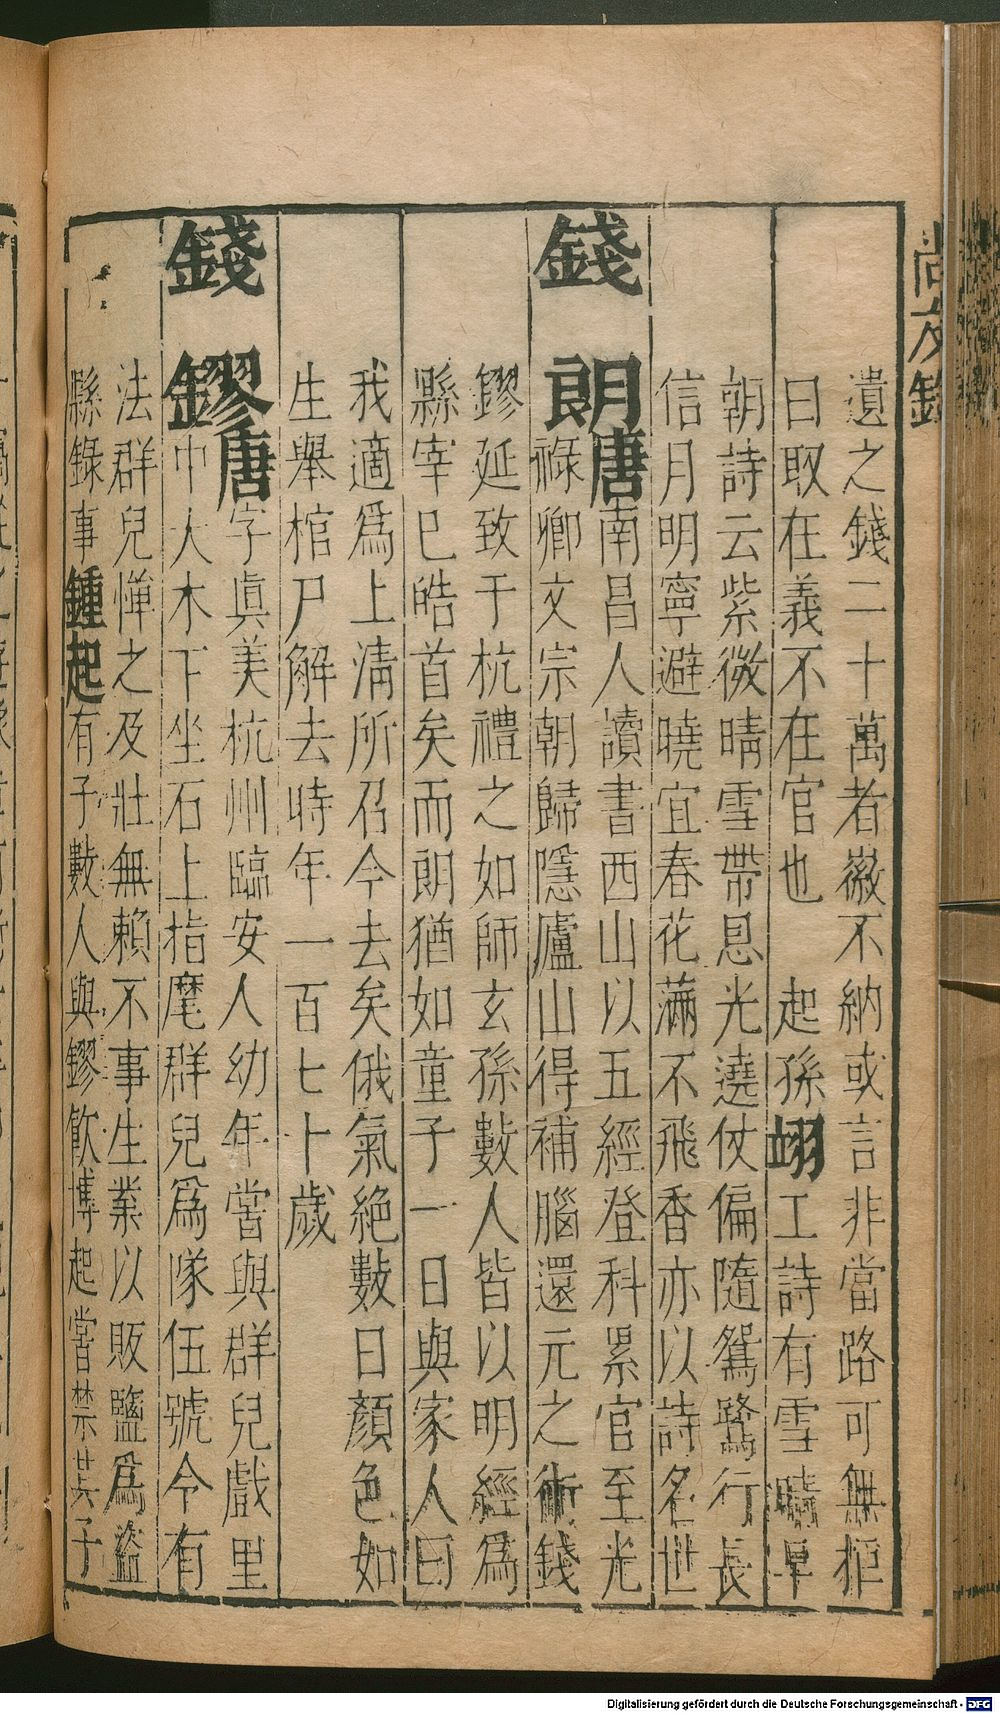 遺之錢二十萬者徽不納或言非當路可無拒
曰取在義不在官也　起孫翊工詩有雪晴早
朝詩云紫微晴雪帶恩光遶仗偏隨鴛鷺行長
信月明寧避曉宜春花滿不飛香亦以詩名世
錢朗唐南昌人讀書西山以五經登科累官至光
祿卿文宗朝歸隱廬山得補腦還元之術錢
鏐延致于杭禮之如師玄孫數人皆以明經為
縣宰巳皓首矣而朗猶如童子一日與家人曰
我適爲上淸所召今去矣俄氣絶數日顏色如
生舉棺尸解去時年一百七十歲
錢鏐唐字眞美杭州臨安人幼年嘗與群兒戲里
中大木下坐石上指麾群兒爲隊伍號令有
法群兒憚之及壯無賴不事生業以販鹽爲盜
縣錄事鍾起有子數人與鏐飮博起嘗禁其子
尚友錄
Digitalisierung gefördert durch die Deutsche Forschungsgemeinschaft - DFG